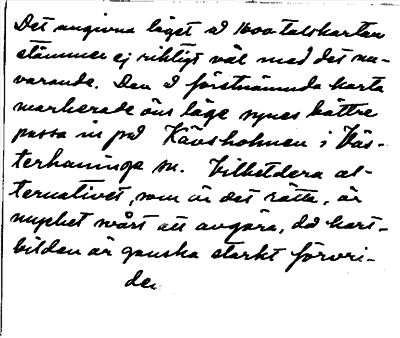 Det angivna läget å 1600-talskartan
stämmer ej riktigt väl med det nu-
varande. Den å förstnämnda karta
markerade öns läge synes bättre
passa in på Kävsholmen i Väs-
terhaninge sn. Vilketdera al-
ternativet, som är det rätta, är
mycket svårt att avgöra, då kart-
bilden är ganska starkt förvri-
den